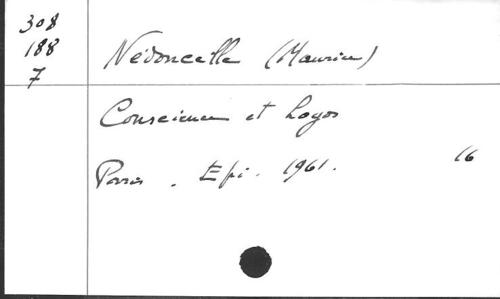 308
188
7
Nédoncelle (Maurice)
Conscience et Logos
Paris. Epi. 1961.
16